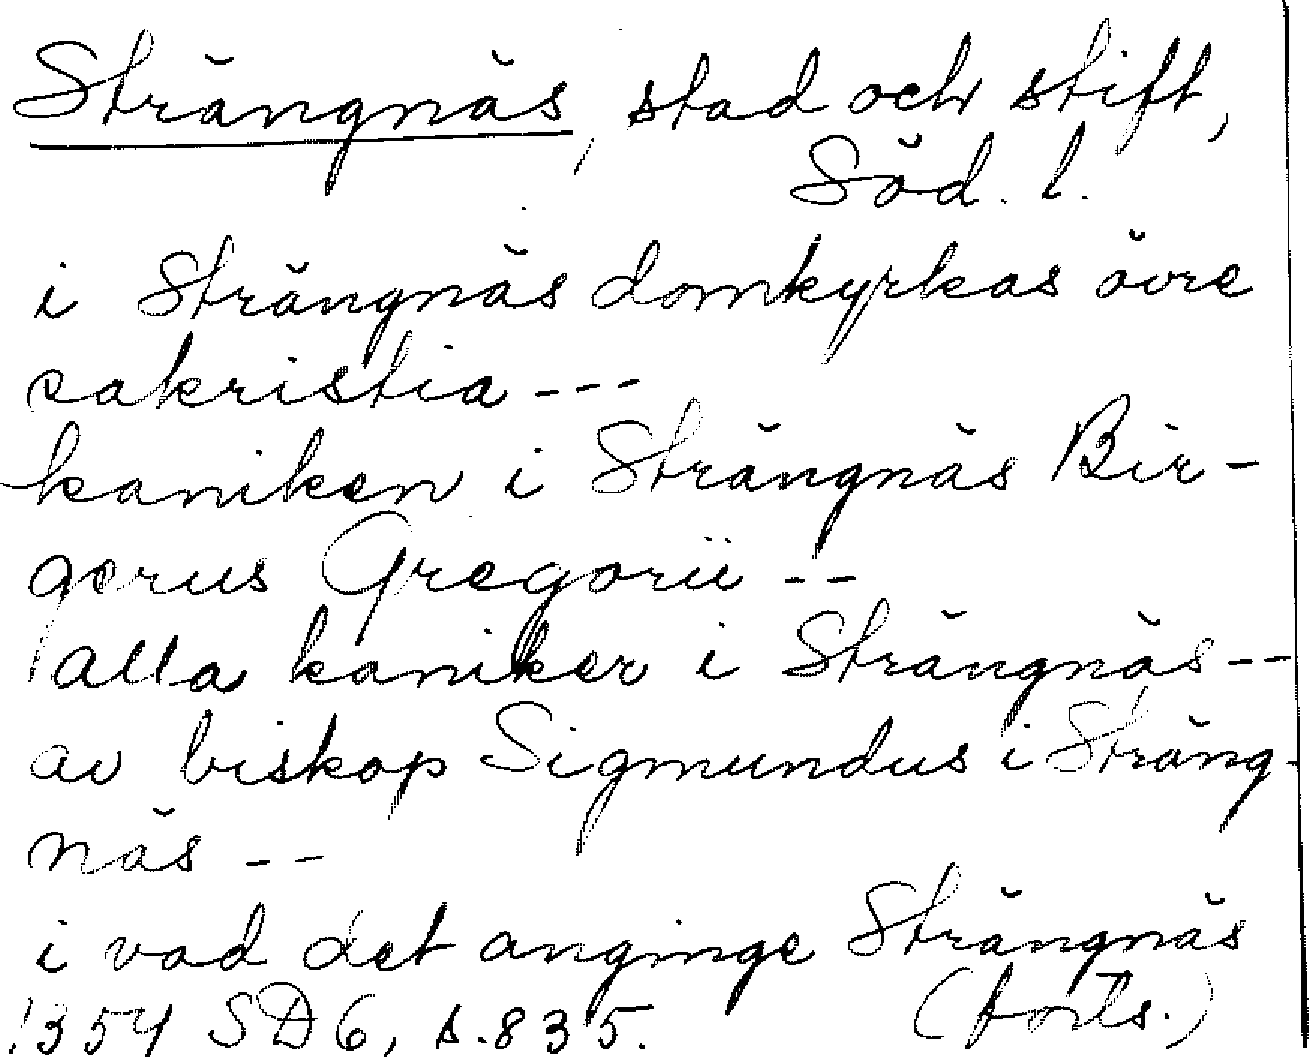 Strängnäs, stad och stift,
Söd. l.
i Strängnäs domkyrkas övre
sakristia ---
kaniken i Strängnäs Bir-
gerus Gregorii --
alla kaniker i Strängnäs --
av biskop Sigmundus i Sträng-
näs --
i vad det anginge Strängnäs
1354 SD 6, s. 835. (forts.)